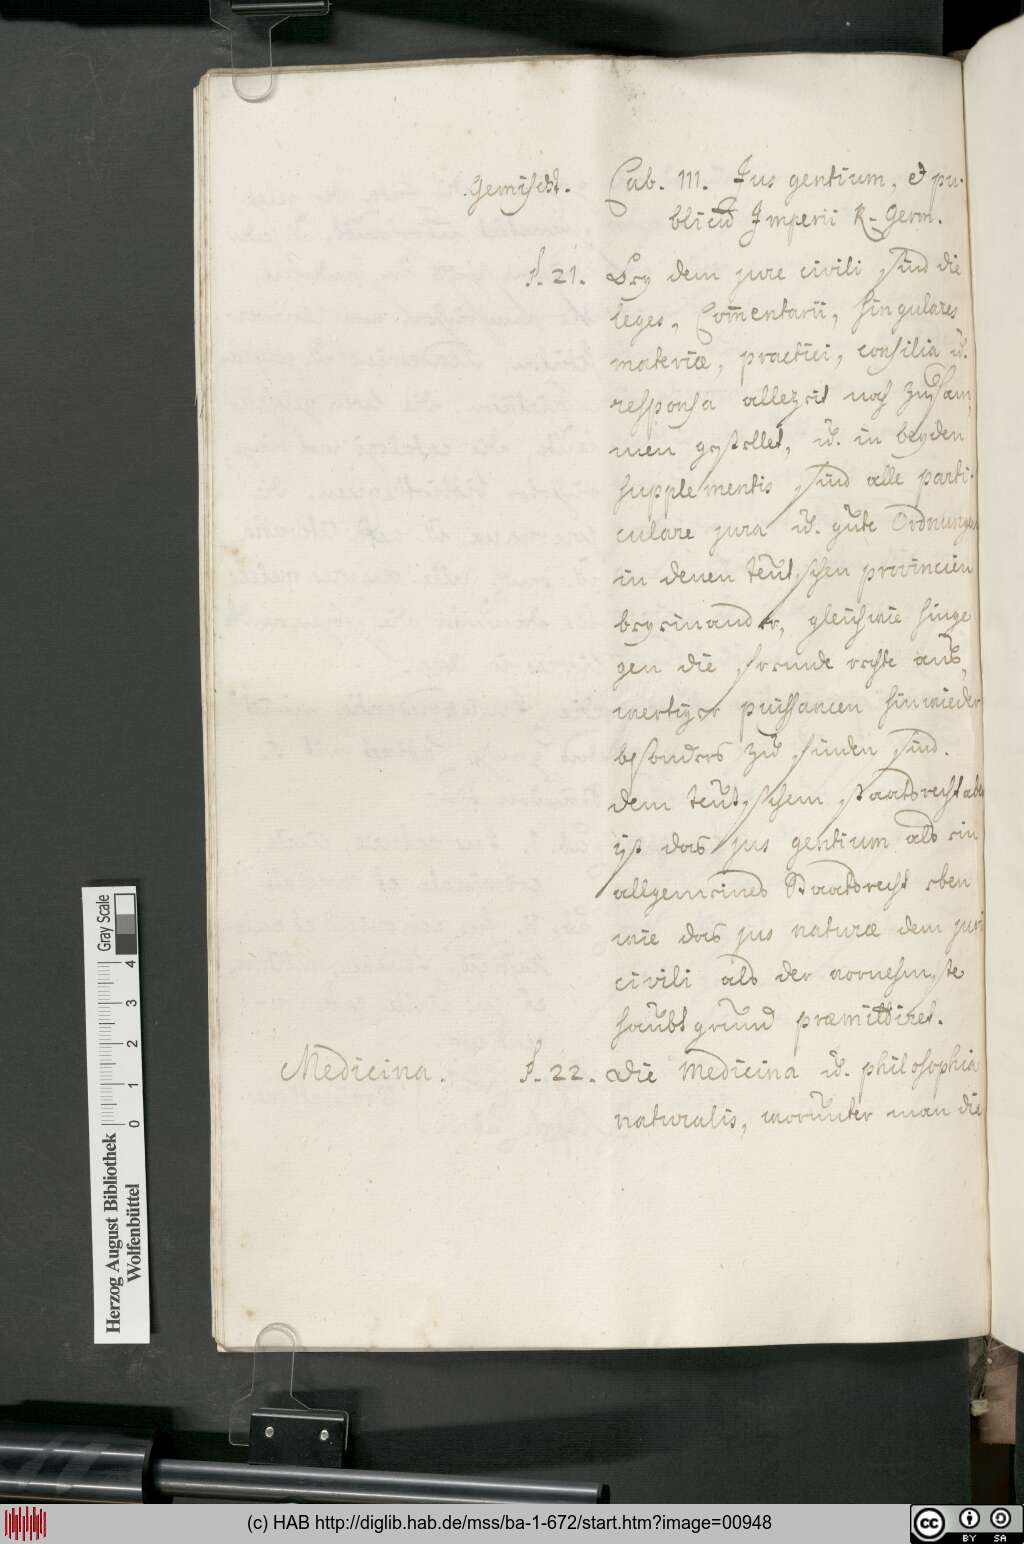 Gemischt. Cab. III. Jus gentium, et pu-
blicū Imperii R. Germ.
§. 21. Bey dem jure civili sind die
leges, Com̄entarii, singulares
materiæ, practici, consilia u.
responsa allezeit nach zusam,
men gestellet, u. in beyden
supplementis sind alle parti-
culare jura u. gute Ordnungen
in denen teutschen provincien
beyeinander, gleichwie hinge
gen die fremde rechte aus,
wertiger puissancen hinwieder
besonders zu finden sind.
dem teutschem staatsrecht aber
ist das jus gentium als ein
allgemeines Staatsrecht eben
wie das jus naturæ dem juri
civili als der vornehmste
haubtgrund præmittiret.
Medicina. §. 22. Die Medicina u. philosophia
naturalis, worunter man die
Herzog August Bibliothek
Wolfenbüttel
Gray Scale
0 1 2 3 4
(c) HAB http://diglib.hab.de/mss/ba-1-672/start.htm?image=00948
cc BY SA